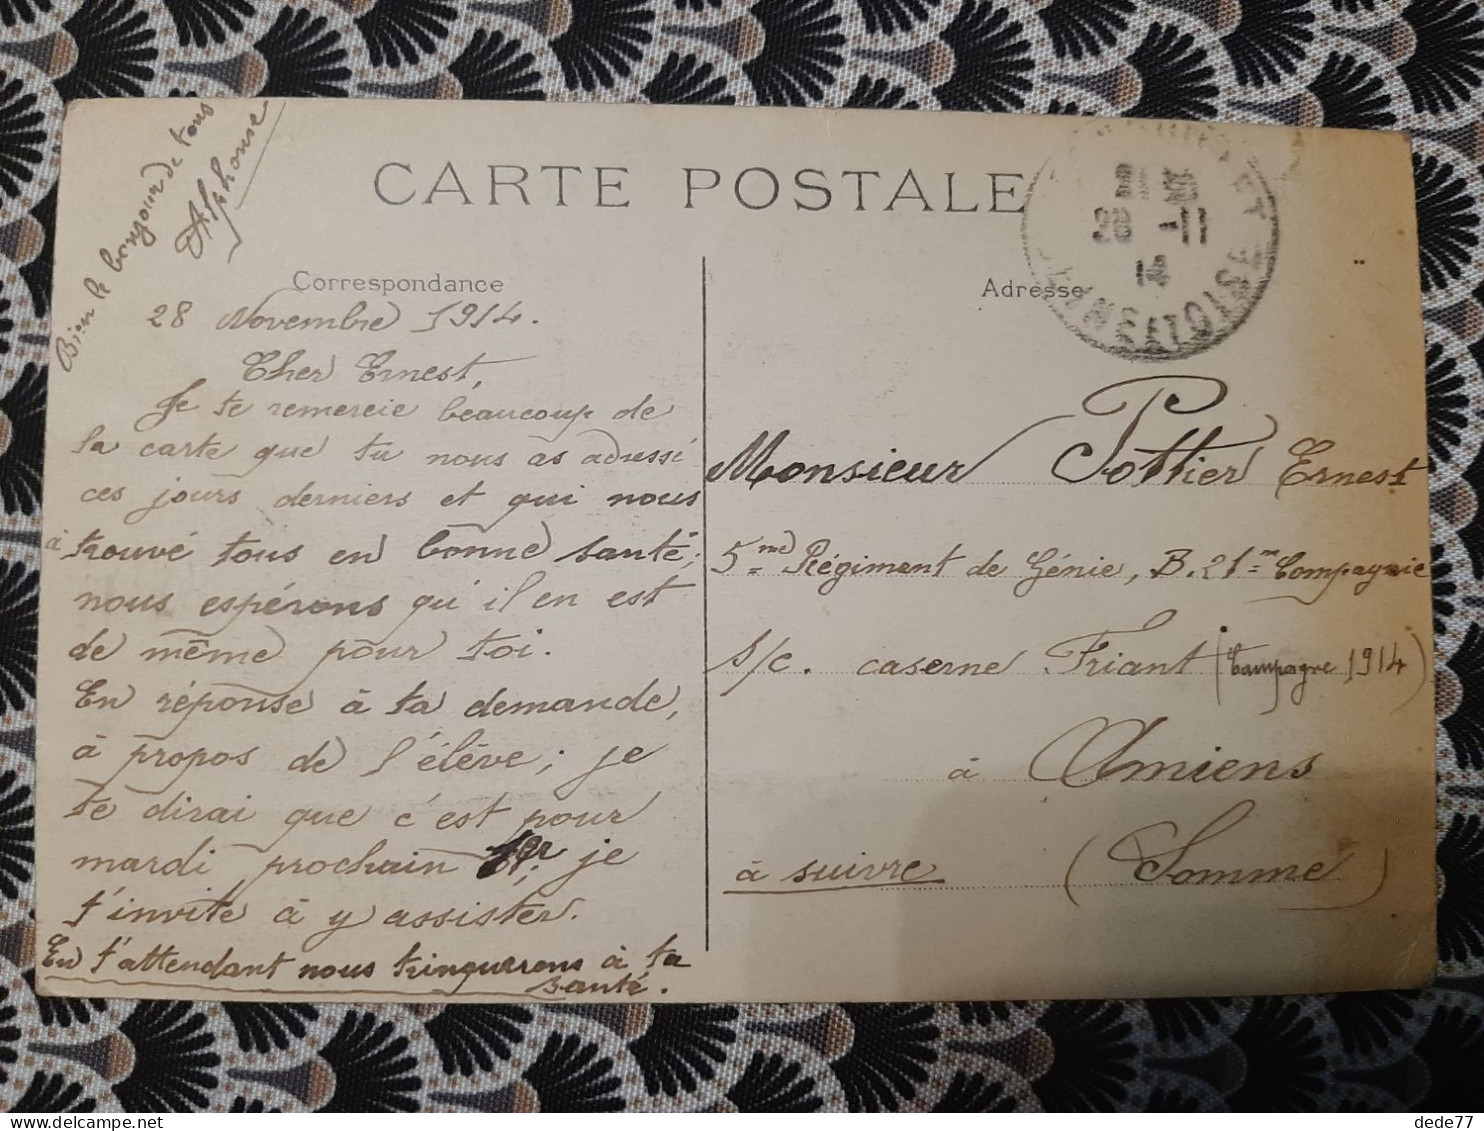 Bien le bonjour de tous
Alphonse
CARTE POSTALE
Correspondance
28 Novembre 1914.
Cher Ernest,
Je te remercie beaucoup de
la carte que tu nous as adressé
ces jours derniers et qui nous
à trouvé tous en bonne santé;
nous espérons qu'il en est
de même pour toi.
En réponse à ta demande,
à propos de l'élève; je
te dirai que c'est pour
mardi prochain 1er; je
t'invite à y assister.
En t'attendant nous trinquerons à ta
santé.
Adresse
SEINE ET OISE
Monsieur Pottier Ernest
5me Régiment de Génie, B.21me Compagnie
s/c. caserne Friant (Campagne 1914)
à Amiens
à suivre (Somme)
delcampe.net
dede77